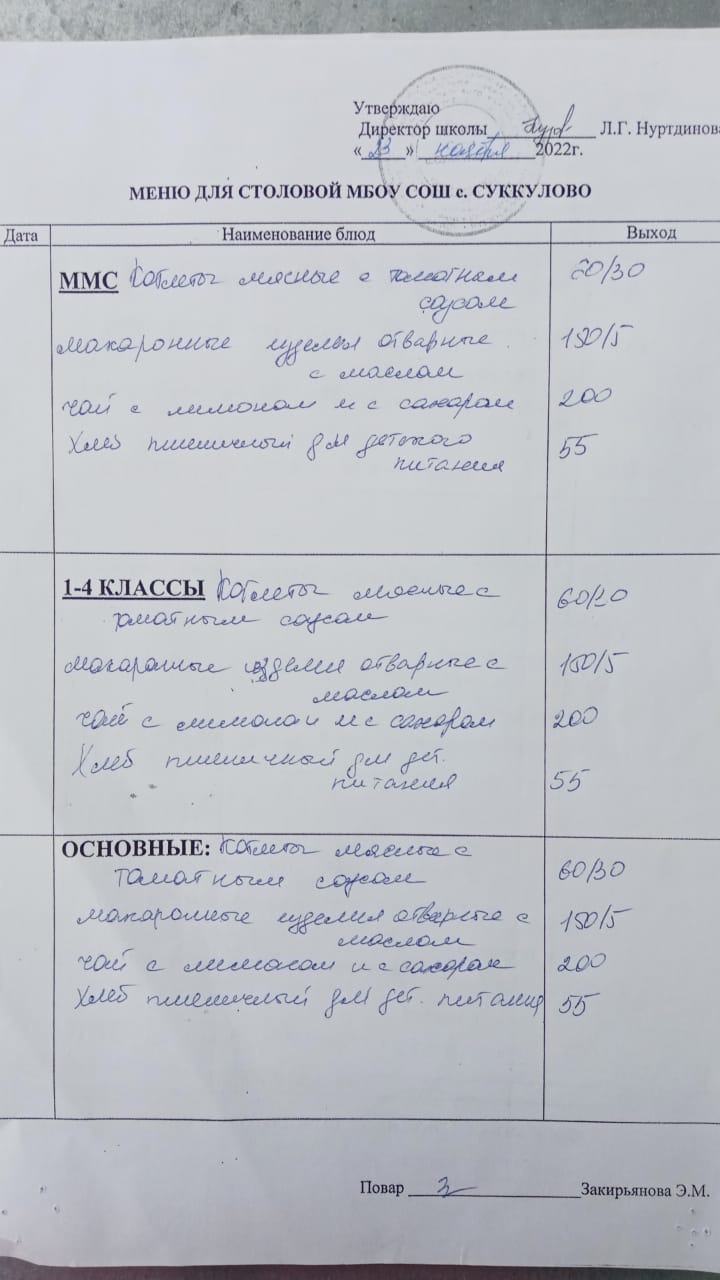 Утверждаю
Директор школы Л.Г. Нуртдинова
«23» ноября 2022г.
МЕНЮ ДЛЯ СТОЛОВОЙ МБОУ СОШ с. СУККУЛОВО
Дата Наименование блюд Выход
ММС Котлеты мясные с томатным 60/30
соусом
макаронные изделия отварные 150/5
с маслом
чай с лимоном и с сахаром 200
Хлеб пшеничный для детского 55
питания
1-4 КЛАССЫ Котлеты мясные с 60/20
томатным соусом
макаронные изделия отварные с 150/5
маслом
чай с лимоном и с сахаром 200
Хлеб пшеничный для дет.
питания 55
ОСНОВНЫЕ: Котлеты мясные с
томатным соусом 60/30
макаронные изделия отварные с 150/5
маслом
чай с лимоном и с сахаром 200
Хлеб пшеничный для дет. питания 55
Повар Закирьянова Э.М.